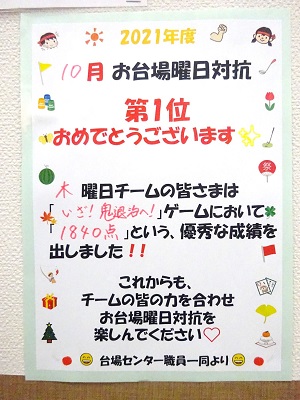 2021年度
10月 お台場曜日対抗
第1位
おめでとうございます
木 曜日チームの皆さまは
「いざ!鬼退治へ!」ゲームにおいて
「1840点」という、優秀な成績を
出しました!!
これからも、
チームの皆の力を合わせ
お台場曜日対抗を
楽しんでください♡
台場センター職員一同より
祭